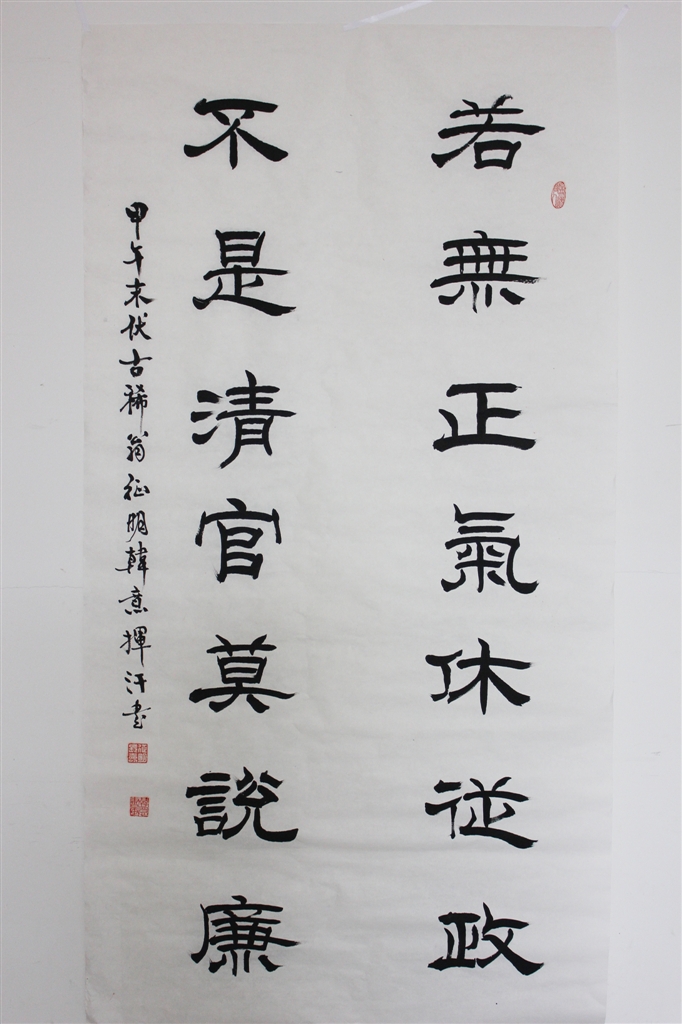 若無正氣休從政
不是清官莫說廉
甲午末伏古稀翁征明韓意揮汗書